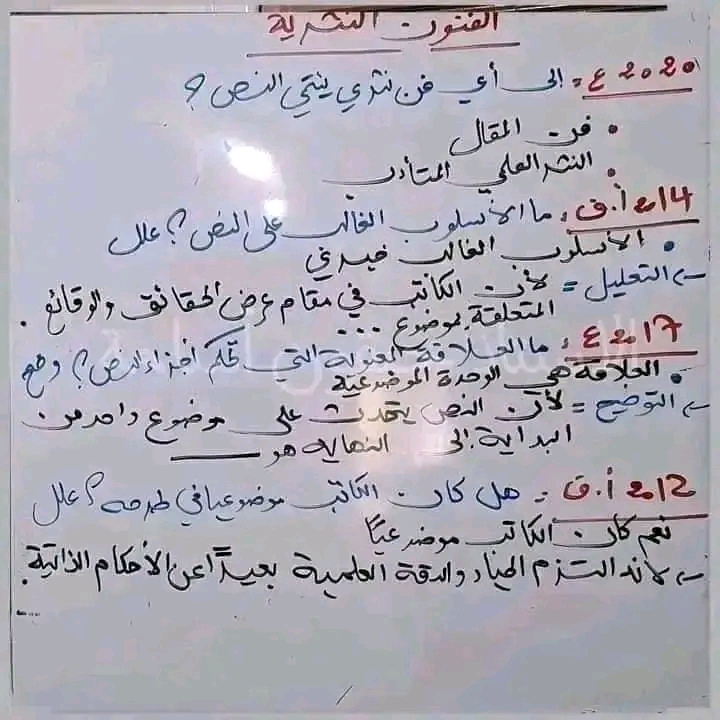 الفنون النثرية
2020 ع = إلى أي فن نثري ينتمي النص؟
• فن المقال
• النثر العلمي المتأدب
2014 أ.ف = ما الأسلوب الغالب على النص؟ علل
• الأسلوب الغالب خبري
← التعليل = لأن الكاتب في مقام عرض الحقائق والوقائع.
المتعلقة بموضوع ...
2017 ع = ما العلاقة المعنوية التي تحكم أجزاء النص؟ وضح
• العلاقة هي الوحدة الموضوعية
← التوضيح = لأن النص يتحدث على موضوع واحد من
البداية إلى النهاية هو ____
2012 أ.ف = هل كان الكاتب موضوعيا في طرحه؟ علل
نعم كان الكاتب موضوعيًا
← لأنه التزم الحياد والدقة العلمية بعيدًا عن الأحكام الذاتية.